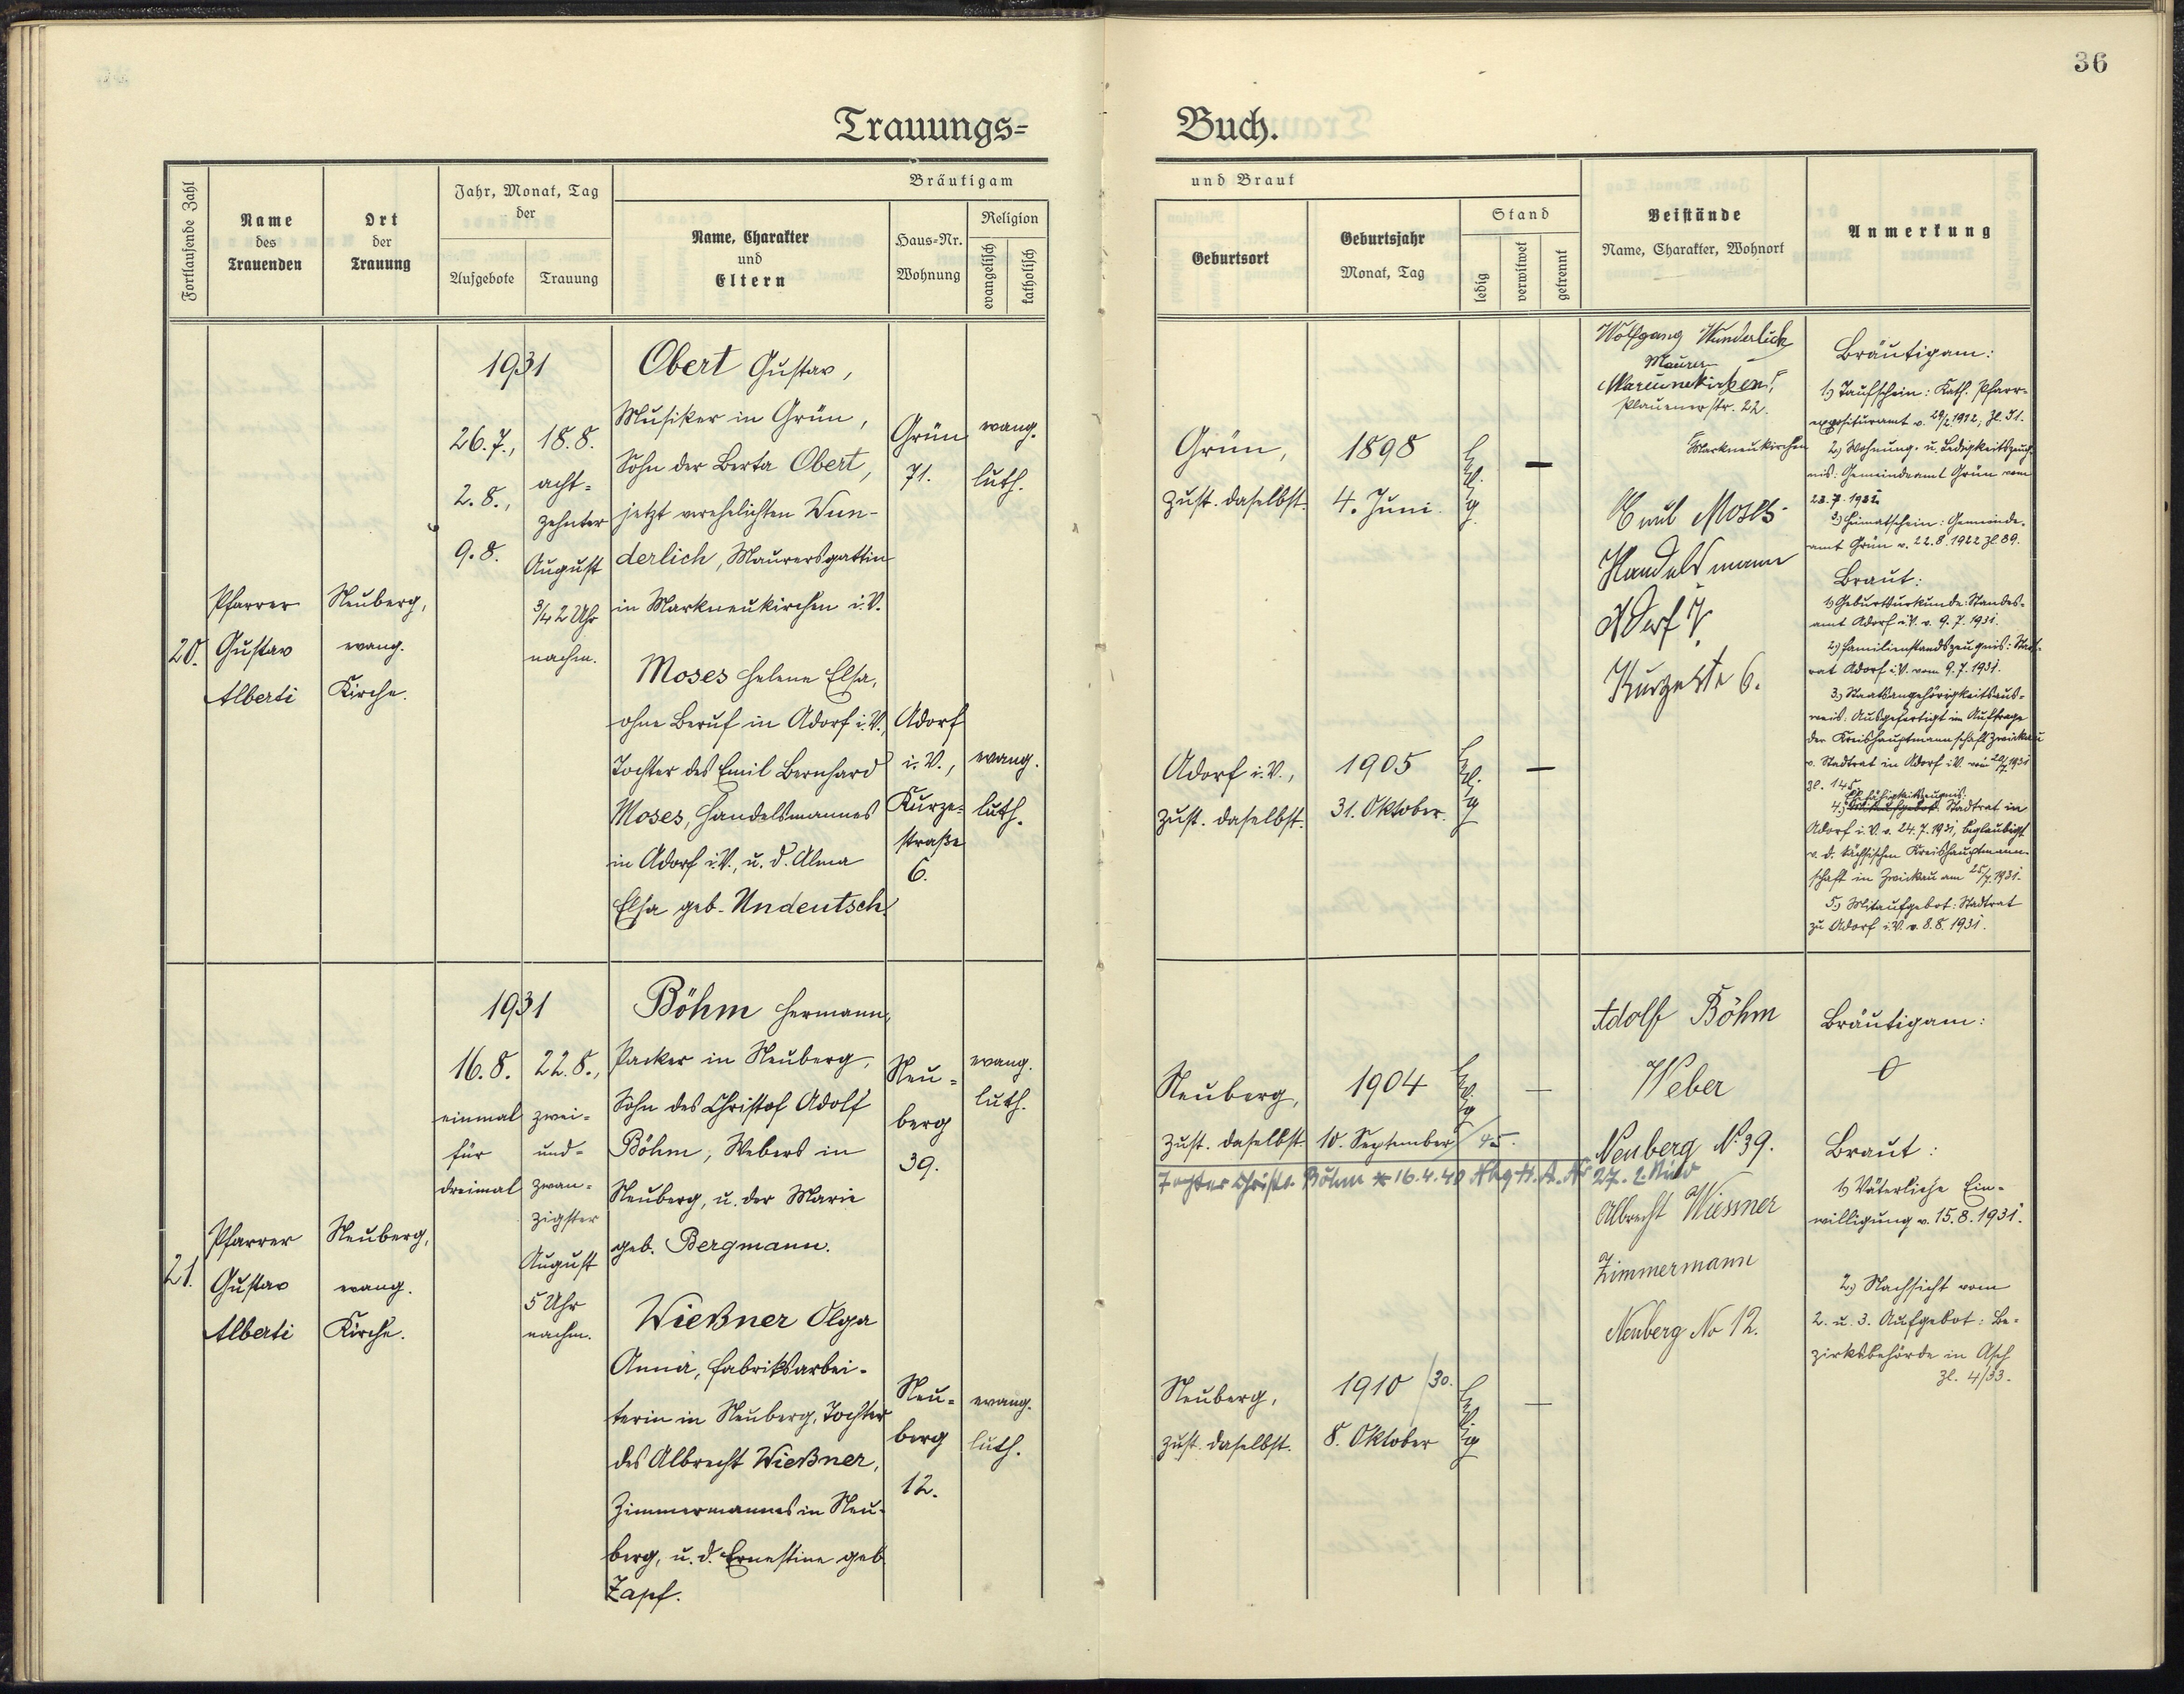 36
Trauungs= Buch.
Fortlaufende Zahl
Name
des
Trauenden
Ort
der
Trauung
Jahr, Monat, Tag
der
Aufgebote
Trauung
Bräutigam
Name, Charakter
und
Eltern
Haus=Nr.
Wohnung
Religion
evangelisch
katholisch
und Braut
Geburtsort
Geburtsjahr
Monat, Tag
Stand
ledig
verwitwet
getrennt
Beistände
Name, Charakter, Wohnort
Anmerkung
20.
Pfarrer
Gustav
Alberti
Neuberg,
evang.
Kirche.
1931
26.7.,
2.8.,
9.8.
18.8.
acht=
zehnter
August
3/4 2 Uhr
nachm.
Obert Gustav,
Musiker in Grün,
Sohn der Berta Obert,
jetzt verehelichten Wun-
derlich, Maurersgattin
in Markneukirchen i.V.
Grün
71.
evang.
luth.
Moses Helene Elsa,
ohne Beruf in Adorf i.V.,
Tochter des Emil Bernhard
Moses, Handelsmannes
in Adorf i.V., u. d. Alma
Elsa geb. Undeutsch.
Adorf
i.V.,
Kurze=
straße
6.
evang.
luth.
Grün,
zust. daselbst.
1898
4. Juni.
ledig
—
Adorf i.V.,
zust. daselbst.
1905
31. Oktober.
ledig
—
Wolfgang Wunderlich
Maurer
Plauenerstr. 22.
Markneukirchen
Emil Moses
Handelsmann
Adorf
Kurzestr 6.
Bräutigam:
1.) Taufschein: Kath. Pfarr-
exposituramt v. 1922, Zl. 51.
2.) Wohnung. u. Ledigkeitszeug-
nis: Gemeindeamt Grün vom
23.7.1931.
3.) Heimatschein: Gemeinde-
amt Grün v. 22.8.1922 Zl 39.
Braut:
1.) Geburtsurkunde: Standes-
amt Adorf i.V. v. 9.7.1931.
2.) Familienstandszeugnis: Stadt-
rat Adorf i.V. vom 9.7.1931.
3.) Staatsangehörigkeitsaus-
weis: Ausgefertigt im Auftrage
der Kreishauptmannschaft Zwickau
v. Stadtrat in Adorf i.V. vom 20/7.1931
Zl. 145.
Ehefähigkeitszeugnis:
4.) Stadtrat in
Adorf i.V. v. 24.7.1931, beglaubigt
v. d. sächsischen Kreishauptmann-
schaft in Zwickau am 25/7.1931.
5.) Mitaufgebot: Stadtrat
zu Adorf i.V. v. 8.8.1931.
21.
Pfarrer
Gustav
Alberti
Neuberg,
evang.
Kirche.
1931
16.8.
einmal
für
dreimal
22.8.,
zwei=
und=
zwan=
zigster
August
5 Uhr
nachm.
Böhm Hermann,
Packer in Neuberg,
Sohn des Christof Adolf
Böhm, Webers in
Neuberg, u. der Marie
geb. Bergmann.
Neu=
berg
39.
evang.
luth.
Wießner Olga
Anna, Fabriksarbei-
terin in Neuberg, Tochter
des Albrecht Wießner,
Zimmermannes in Neu-
berg, u. d. Ernestine geb.
Zapf.
Neu=
berg
12.
evang.
luth.
Neuberg,
zust. daselbst
1904
10. September /45.
ledig
—
Tochter Christa Böhm * 16.4.40
Neuberg,
zust. daselbst.
1910 /30.
8. Oktober
ledig
—
Adolf Böhm
Weber
Neuberg No. 39.
Albrecht Wiessner
Zimmermann
Neuberg No 12.
Bräutigam:
0
Braut:
1.) Väterliche Ein-
willigung v. 15.8.1931.
2.) Nachsicht vom
2. u. 3. Aufgebot: Be-
zirksbehörde in Asch
Zl. 4/33.